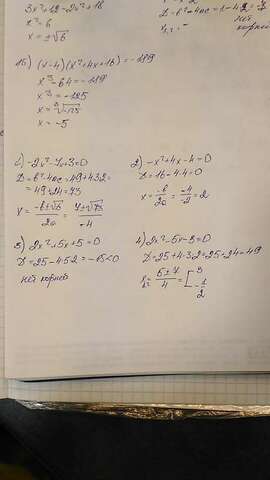 3x²+12-2x²+18
x²=6
x=±√6
нет
корней
15) (x-4)(x²+4x+16)=-189
x³-64=-189
x³=-125
x=∛-125
x=-5
1) -2x²-7x+3=0
D=b²-4ac=49+4·3·2=
=49+24=73
x=-b±√D/2a=7±√73/-4
2) -x²+4x-4=0
D=16-4·4=0
x=-b/2a=-4/-2=2
3) 2x²+5x+5=0
D=25-4·5·2=-15<0
нет корней
4) 2x²-5x-3=0
D=25+4·3·2=25+24=49
x=5±7/4=[3
-1/2